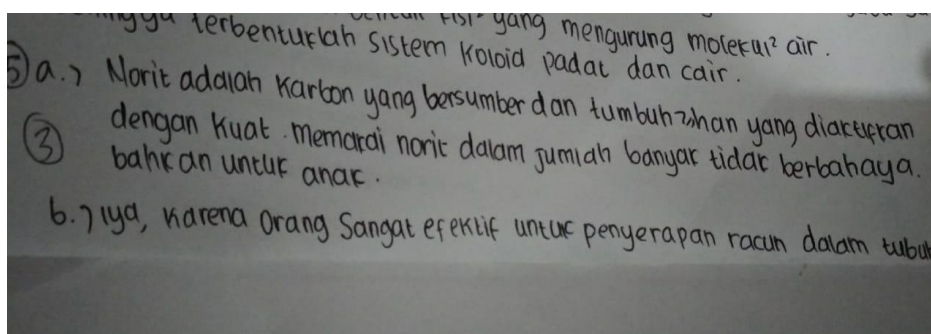 terbenturlah sistem koloid padat dan cair.
yang mengurung molekul² air.
5) a.) Norit adalah karbon yang bersumber dan tumbuhzhan yang diaktifkan
3 dengan kuat. memakai norit dalam jumlah banyak tidak berbahaya.
bahkan untuk anak.
b.) iya, karena orang sangat efektif untuk penyerapan racun dalam tubuh